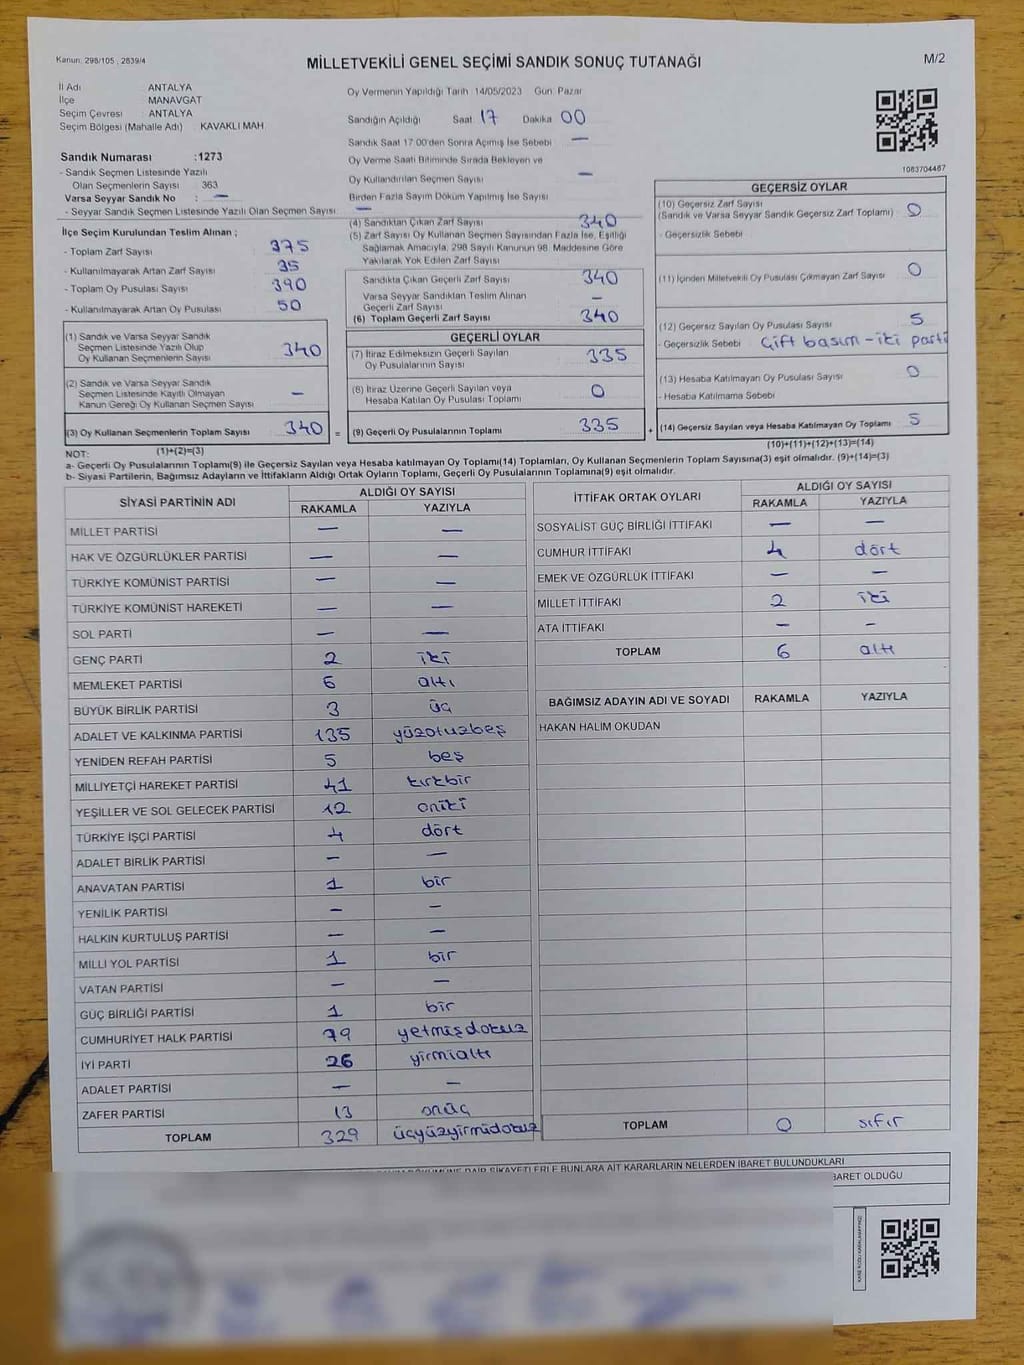 Kanun: 298/105 , 2839/4
MİLLETVEKİLİ GENEL SEÇİMİ SANDIK SONUÇ TUTANAĞI
M/2
İl Adı ANTALYA
İlçe MANAVGAT
Seçim Çevresi ANTALYA
Seçim Bölgesi (Mahalle Adı) KAVAKLI MAH
Oy Vermenin Yapıldığı Tarih 14/05/2023 Gün: Pazar
Sandığın Açıldığı Saat 17 Dakika 00
Sandık Saat 17:00'den Sonra Açımış İse Sebebi —
Oy Verme Saati Bitiminde Sırada Bekleyen ve
Oy Kullandırılan Seçmen Sayısı —
Birden Fazla Sayım Döküm Yapılmış İse Sayısı —
1083704487
Sandık Numarası :1273
- Sandık Seçmen Listesinde Yazılı
Olan Seçmenlerin Sayısı 363
Varsa Seyyar Sandık No : —
- Seyyar Sandık Seçmen Listesinde Yazılı Olan Seçmen Sayısı
İlçe Seçim Kurulundan Teslim Alınan ;
- Toplam Zarf Sayısı 375
- Kullanılmayarak Artan Zarf Sayısı 35
- Toplam Oy Pusulası Sayısı 390
- Kullanılmayarak Artan Oy Pusulası 50
(1) Sandık ve Varsa Seyyar Sandık
Seçmen Listesinde Yazılı Olup
Oy Kullanan Seçmenlerin Sayısı 340
(2) Sandık ve Varsa Seyyar Sandık
Seçmen Listesinde Kayıtlı Olmayan
Kanun Gereği Oy Kullanan Seçmen Sayısı —
(3) Oy Kullanan Seçmenlerin Toplam Sayısı 340 =
(1)+(2)=(3)
(4) Sandıktan Çıkan Zarf Sayısı 340
(5) Zarf Sayısı Oy Kullanan Seçmen Sayısından Fazla İse, Eşitliği
Sağlamak Amacıyla, 298 Sayılı Kanunun 98. Maddesine Göre
Yakılarak Yok Edilen Zarf Sayısı
Sandıkta Çıkan Geçerli Zarf Sayısı 340
Varsa Seyyar Sandıktan Teslim Alınan
Geçerli Zarf Sayısı —
(6) Toplam Geçerli Zarf Sayısı 340
GEÇERLİ OYLAR
(7) İtiraz Edilmeksizin Geçerli Sayılan
Oy Pusulalarının Sayısı 335
(8) İtiraz Üzerine Geçerli Sayılan veya
Hesaba Katılan Oy Pusulası Toplamı 0
(9) Geçerli Oy Pusulalarının Toplamı 335 +
GEÇERSİZ OYLAR
(10) Geçersiz Zarf Sayısı
(Sandık ve Varsa Seyyar Sandık Geçersiz Zarf Toplamı) 0
- Geçersizlik Sebebi
(11) İçinden Milletvekili Oy Pusulası Çıkmayan Zarf Sayısı 0
(12) Geçersiz Sayılan Oy Pusulası Sayısı 5
- Geçersizlik Sebebi Çift basım - iki parti
(13) Hesaba Katılmayan Oy Pusulası Sayısı 0
- Hesaba Katılmama Sebebi
(14) Geçersiz Sayılan veya Hesaba Katılmayan Oy Toplamı 5
(10)+(11)+(12)+(13)=(14)
NOT:
a- Geçerli Oy Pusulalarının Toplamı(9) ile Geçersiz Sayılan veya Hesaba katılmayan Oy Toplamı(14) Toplamları, Oy Kullanan Seçmenlerin Toplam Sayısına(3) eşit olmalıdır. (9)+(14)=(3)
b- Siyasi Partilerin, Bağımsız Adayların ve İttifakların Aldığı Ortak Oyların Toplamı, Geçerli Oy Pusulalarının Toplamına(9) eşit olmalıdır.
SİYASİ PARTİNİN ADI ALDIĞI OY SAYISI
RAKAMLA YAZIYLA
MİLLET PARTİSİ — —
HAK VE ÖZGÜRLÜKLER PARTİSİ — —
TÜRKİYE KOMÜNİST PARTİSİ — —
TÜRKİYE KOMÜNİST HAREKETİ — —
SOL PARTİ — —
GENÇ PARTİ 2 iki
MEMLEKET PARTİSİ 6 altı
BÜYÜK BİRLİK PARTİSİ 3 üç
ADALET VE KALKINMA PARTİSİ 135 yüzotuzbeş
YENİDEN REFAH PARTİSİ 5 beş
MİLLİYETÇİ HAREKET PARTİSİ 41 kırkbir
YEŞİLLER VE SOL GELECEK PARTİSİ 12 oniki
TÜRKİYE İŞÇİ PARTİSİ 4 dört
ADALET BİRLİK PARTİSİ — —
ANAVATAN PARTİSİ 1 bir
YENİLİK PARTİSİ — —
HALKIN KURTULUŞ PARTİSİ — —
MİLLİ YOL PARTİSİ 1 bir
VATAN PARTİSİ — —
GÜÇ BİRLİĞİ PARTİSİ 1 bir
CUMHURİYET HALK PARTİSİ 79 yetmişdokuz
İYİ PARTİ 26 yirmialtı
ADALET PARTİSİ — —
ZAFER PARTİSİ 13 onüç
TOPLAM 329 üçyüzyirmidokuz
İTTİFAK ORTAK OYLARI ALDIĞI OY SAYISI
RAKAMLA YAZIYLA
SOSYALİST GÜÇ BİRLİĞİ İTTİFAKI — —
CUMHUR İTTİFAKI 4 dört
EMEK VE ÖZGÜRLÜK İTTİFAKI — —
MİLLET İTTİFAKI 2 iki
ATA İTTİFAKI — —
TOPLAM 6 altı
BAĞIMSIZ ADAYIN ADI VE SOYADI RAKAMLA YAZIYLA
HAKAN HALIM OKUDAN
TOPLAM 0 sıfır
DÖKÜMÜNE DAİR ŞİKAYETLERLE BUNLARA AİT KARARLARIN NELERDEN İBARET BULUNDUKLARI
İBARET OLDUĞU